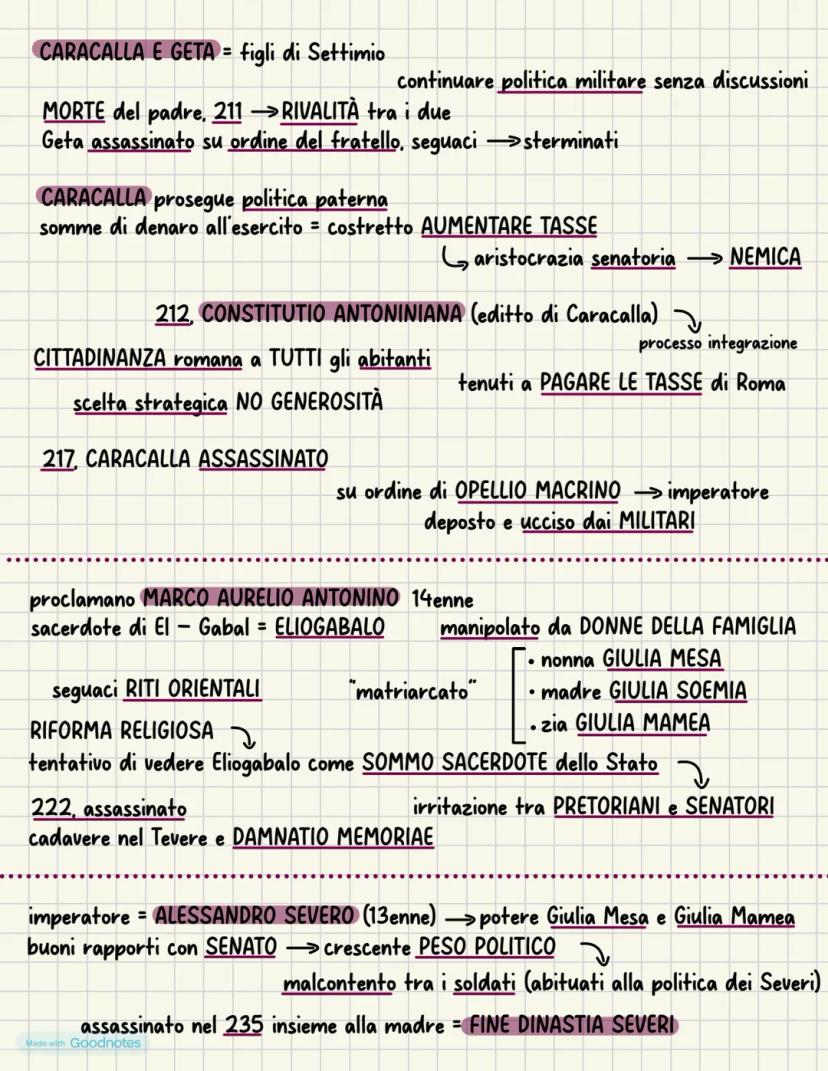 CARACALLA E GETA = figli di Settimio
continuare politica militare senza discussioni
MORTE del padre, 211 → RIVALITÀ tra i due
Geta assassinato su ordine del fratello, seguaci → sterminati
CARACALLA prosegue politica paterna
somme di denaro all'esercito = costretto AUMENTARE TASSE
aristocrazia senatoria → NEMICA
212, CONSTITUTIO ANTONINIANA (editto di Caracalla)
processo integrazione
CITTADINANZA romana a TUTTI gli abitanti
tenuti a PAGARE LE TASSE di Roma
scelta strategica NO GENEROSITÀ
217, CARACALLA ASSASSINATO
su ordine di OPELLIO MACRINO → imperatore
deposto e ucciso dai MILITARI
proclamano MARCO AURELIO ANTONINO 14enne
sacerdote di El - Gabal = ELIOGABALO
manipolato da DONNE DELLA FAMIGLIA
• nonna GIULIA MESA
seguaci RITI ORIENTALI
"matriarcato"
• madre GIULIA SOEMIA
• zia GIULIA MAMEA
RIFORMA RELIGIOSA
tentativo di vedere Eliogabalo come SOMMO SACERDOTE dello Stato
222, assassinato
irritazione tra PRETORIANI e SENATORI
cadavere nel Tevere e DAMNATIO MEMORIAE
imperatore = ALESSANDRO SEVERO (13enne) → potere Giulia Mesa e Giulia Mamea
buoni rapporti con SENATO → crescente PESO POLITICO
malcontento tra i soldati (abituati alla politica dei Severi)
assassinato nel 235 insieme alla madre = FINE DINASTIA SEVERI
Made with Goodnotes